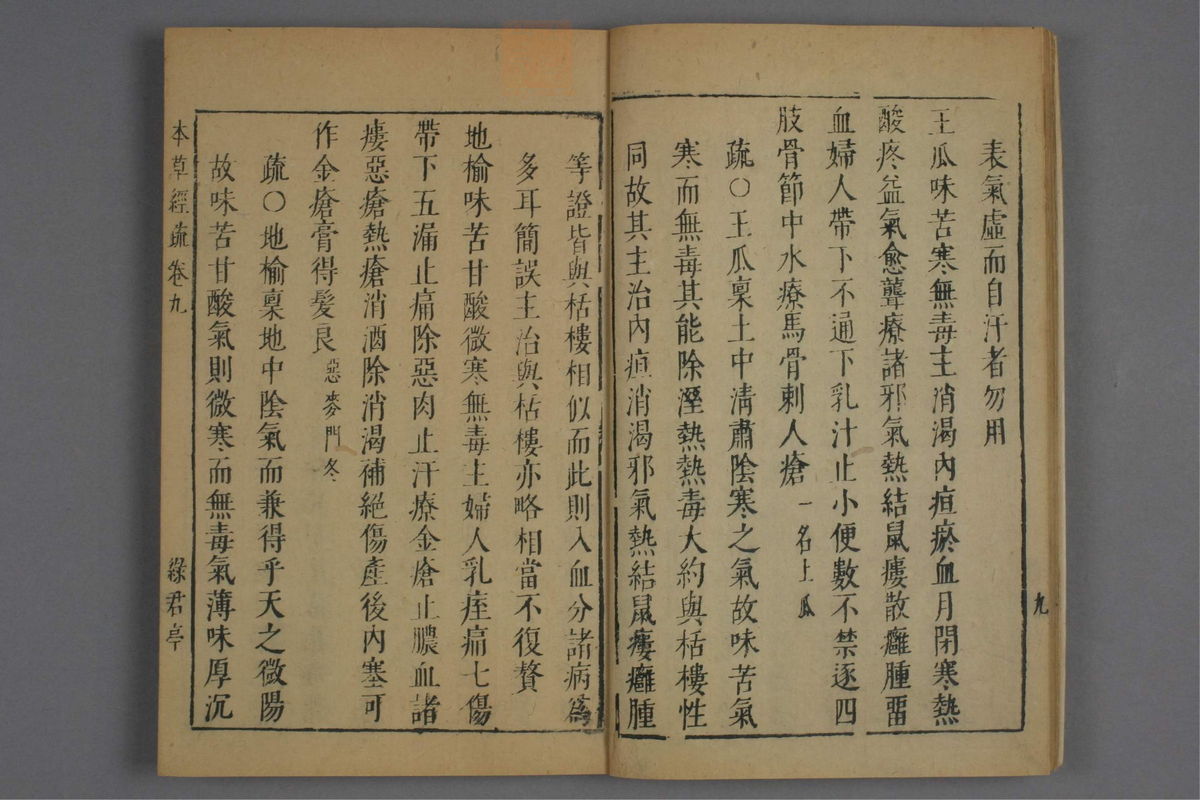 表氣虛而自汗者勿用
王瓜味苦寒無毒主消渴內疸瘀血月閉寒熱
酸疼益氣愈聾療諸邪氣熱結鼠瘻散癰腫畱
血婦人帶下不通下乳汁止小便數不禁逐四
肢骨節中水療馬骨刺人瘡一名土瓜
疏○王瓜稟土中淸肅陰寒之氣故味苦氣
寒而無毒其能除溼熱熱毒大約與栝樓性
同故其主治內疸消渴邪氣熱結鼠瘻癰腫
九
等證皆與栝樓相似而此則入血分諸病爲
多耳簡誤主治與栝樓亦略相當不復贅
地榆味苦甘酸微寒無毒主婦人乳痓痛七傷
帶下五漏止痛除惡肉止汗療金瘡止膿血諸
瘻惡瘡熱瘡消酒除消渴補絕傷產後內塞可
作金瘡膏得髮良惡麥門冬
疏○地榆稟地中陰氣而兼得乎天之微陽
故味苦甘酸氣則微寒而無毒氣薄味厚沉
本草經疏卷九
綠君亭